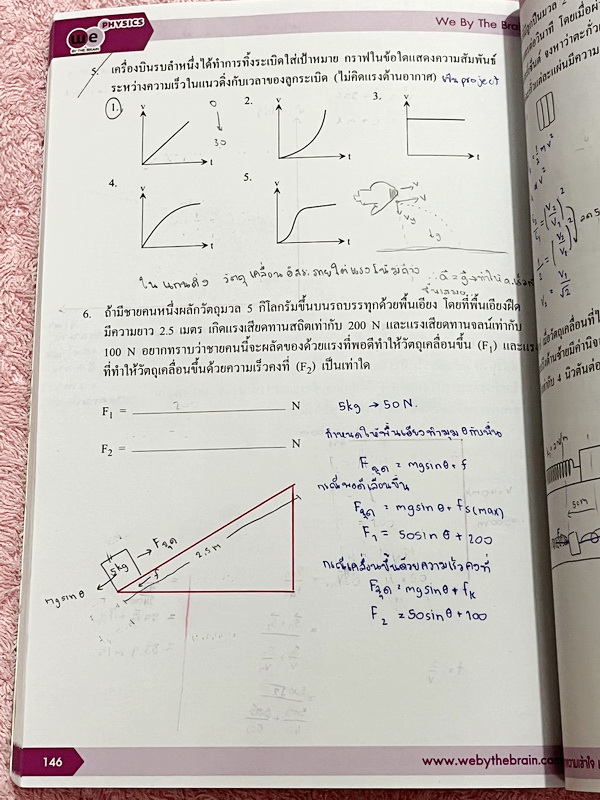 we
PHYSICS
BY THE BRAIN
We By The Brain
5. เครื่องบินรบลำหนึ่งได้ทำการทิ้งระเบิดใส่เป้าหมาย กราฟในข้อใดแสดงความสัมพันธ์
ระหว่างความเร็วในแนวดิ่งกับเวลาของลูกระเบิด (ไม่คิดแรงต้านอากาศ) project
1. v t
0
30
2. v t
3. v t
4. v t
5. v t
v
v
vy
g
ใน แกนดิ่ง วัตถุ เคลื่อน อิสระ ภายใต้ แรงโน้มถ่วง
6. ถ้ามีชายคนหนึ่งผลักวัตถุมวล 5 กิโลกรัมขึ้นบนรถบรรทุกด้วยพื้นเอียง โดยที่พื้นเอียงฝืด
มีความยาว 2.5 เมตร เกิดแรงเสียดทานสถิตเท่ากับ 200 N และแรงเสียดทานจลน์เท่ากับ
100 N อยากทราบว่าชายคนนี้จะผลักของด้วยแรงที่พอดีทำให้วัตถุเคลื่อนขึ้น (F1) และแรง
ที่ทำให้วัตถุเคลื่อนขึ้นด้วยความเร็วคงที่ (F2) เป็นเท่าใด
F1 = N
F2 = N
5kg → 50 N.
กำหนดให้พื้นเอียงทำมุม θ กับพื้น
Fฉุด = mgsinθ + f
กรณีพอดีเลื่อนขึ้น
Fฉุด = mgsinθ + fs(max)
F1 = 50sinθ + 200
กรณีเคลื่อนขึ้นด้วยความเร็วคงที่
Fฉุด = mgsinθ + fk
F2 = 50sinθ + 100
5kg
Fฉุด
f
2.5 m
mg sin θ
146
www.webythebrain.com